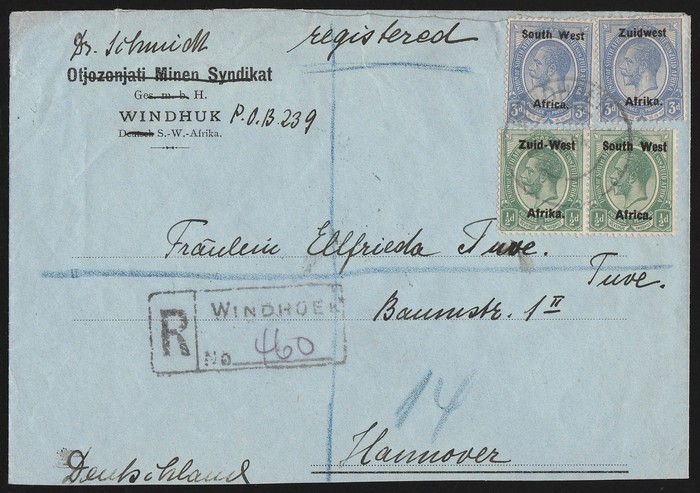 Dr. Schmidt
registered
Otjozonjati Minen Syndikat
Ges. m. b. H.
WINDHUK P.O.B. 239
Deutsch S.-W.-Afrika.
South West
Africa.
3d 3d
Zuidwest
Afrika.
3d 3d
Zuid-West
Afrika.
½d ½d
South West
Africa.
½d ½d
Fräulein Ellfrieda Tuve.
Tuve.
Baumstr. 1 II
R
WINDHOEK
No 460
14
Hannover
Deutschland